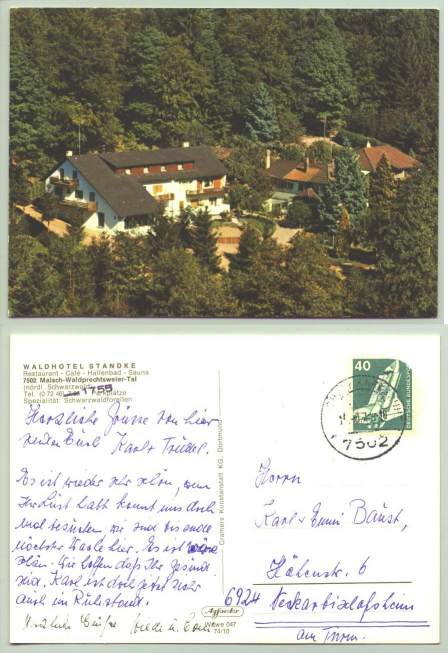 WALDHOTEL STANDKE
Restaurant - Café - Hallenbad - Sauna
7502 Malsch-Waldprechtsweier-Tal
(nördl. Schwarzwald)
Tel. (0 72 46) 1755 Parkplätze
Spezialität: Schwarzwaldforellen
Herzliche Grüsse von hier
Karl u. Trudel.
Es ist wieder sehr schön, wenn
Ihr Lust habt kommt uns doch
mal besuchen wir sind bis Ende
nächster Woche hier. Es ist
schön. Wir hoffen daß Ihr gesund
seid. Karl ist doch jetzt
auch im Ruhestand.
Herzliche Grüße
Cramers Kunstanstalt KG, Dortmund
Wawe 047
74/10
40
DEUTSCHE BUNDESPOST
7502
Herrn
Karl u. Emmi Baust,
Höhenstr. 6
6924 Neckarbischofsheim